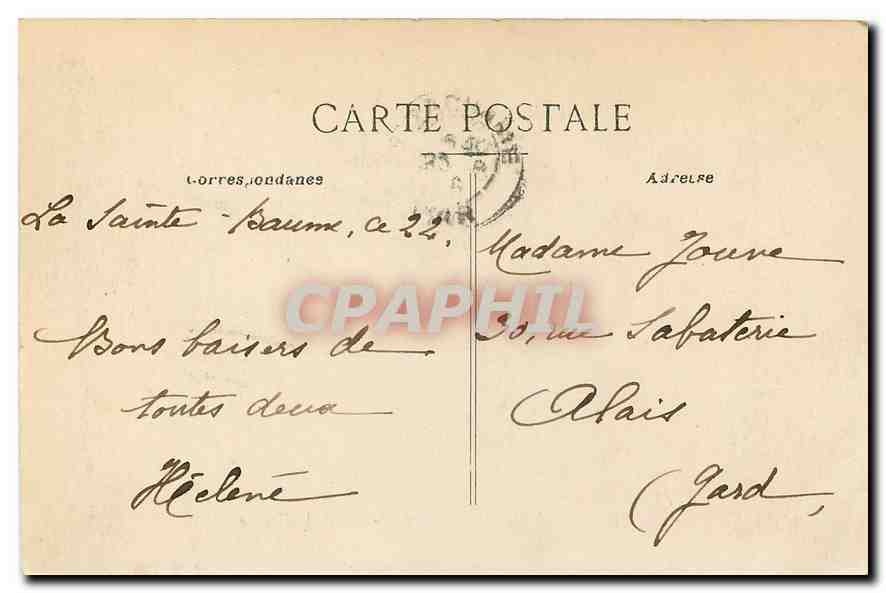 CARTE POSTALE
Correspondance
Adresse
La Sainte-Baume, ce 22,
Bons baisers de
toutes deux
Hélène
Madame Jouve
30, rue Sabaterie
Alais
(Gard,
CPAPHIL